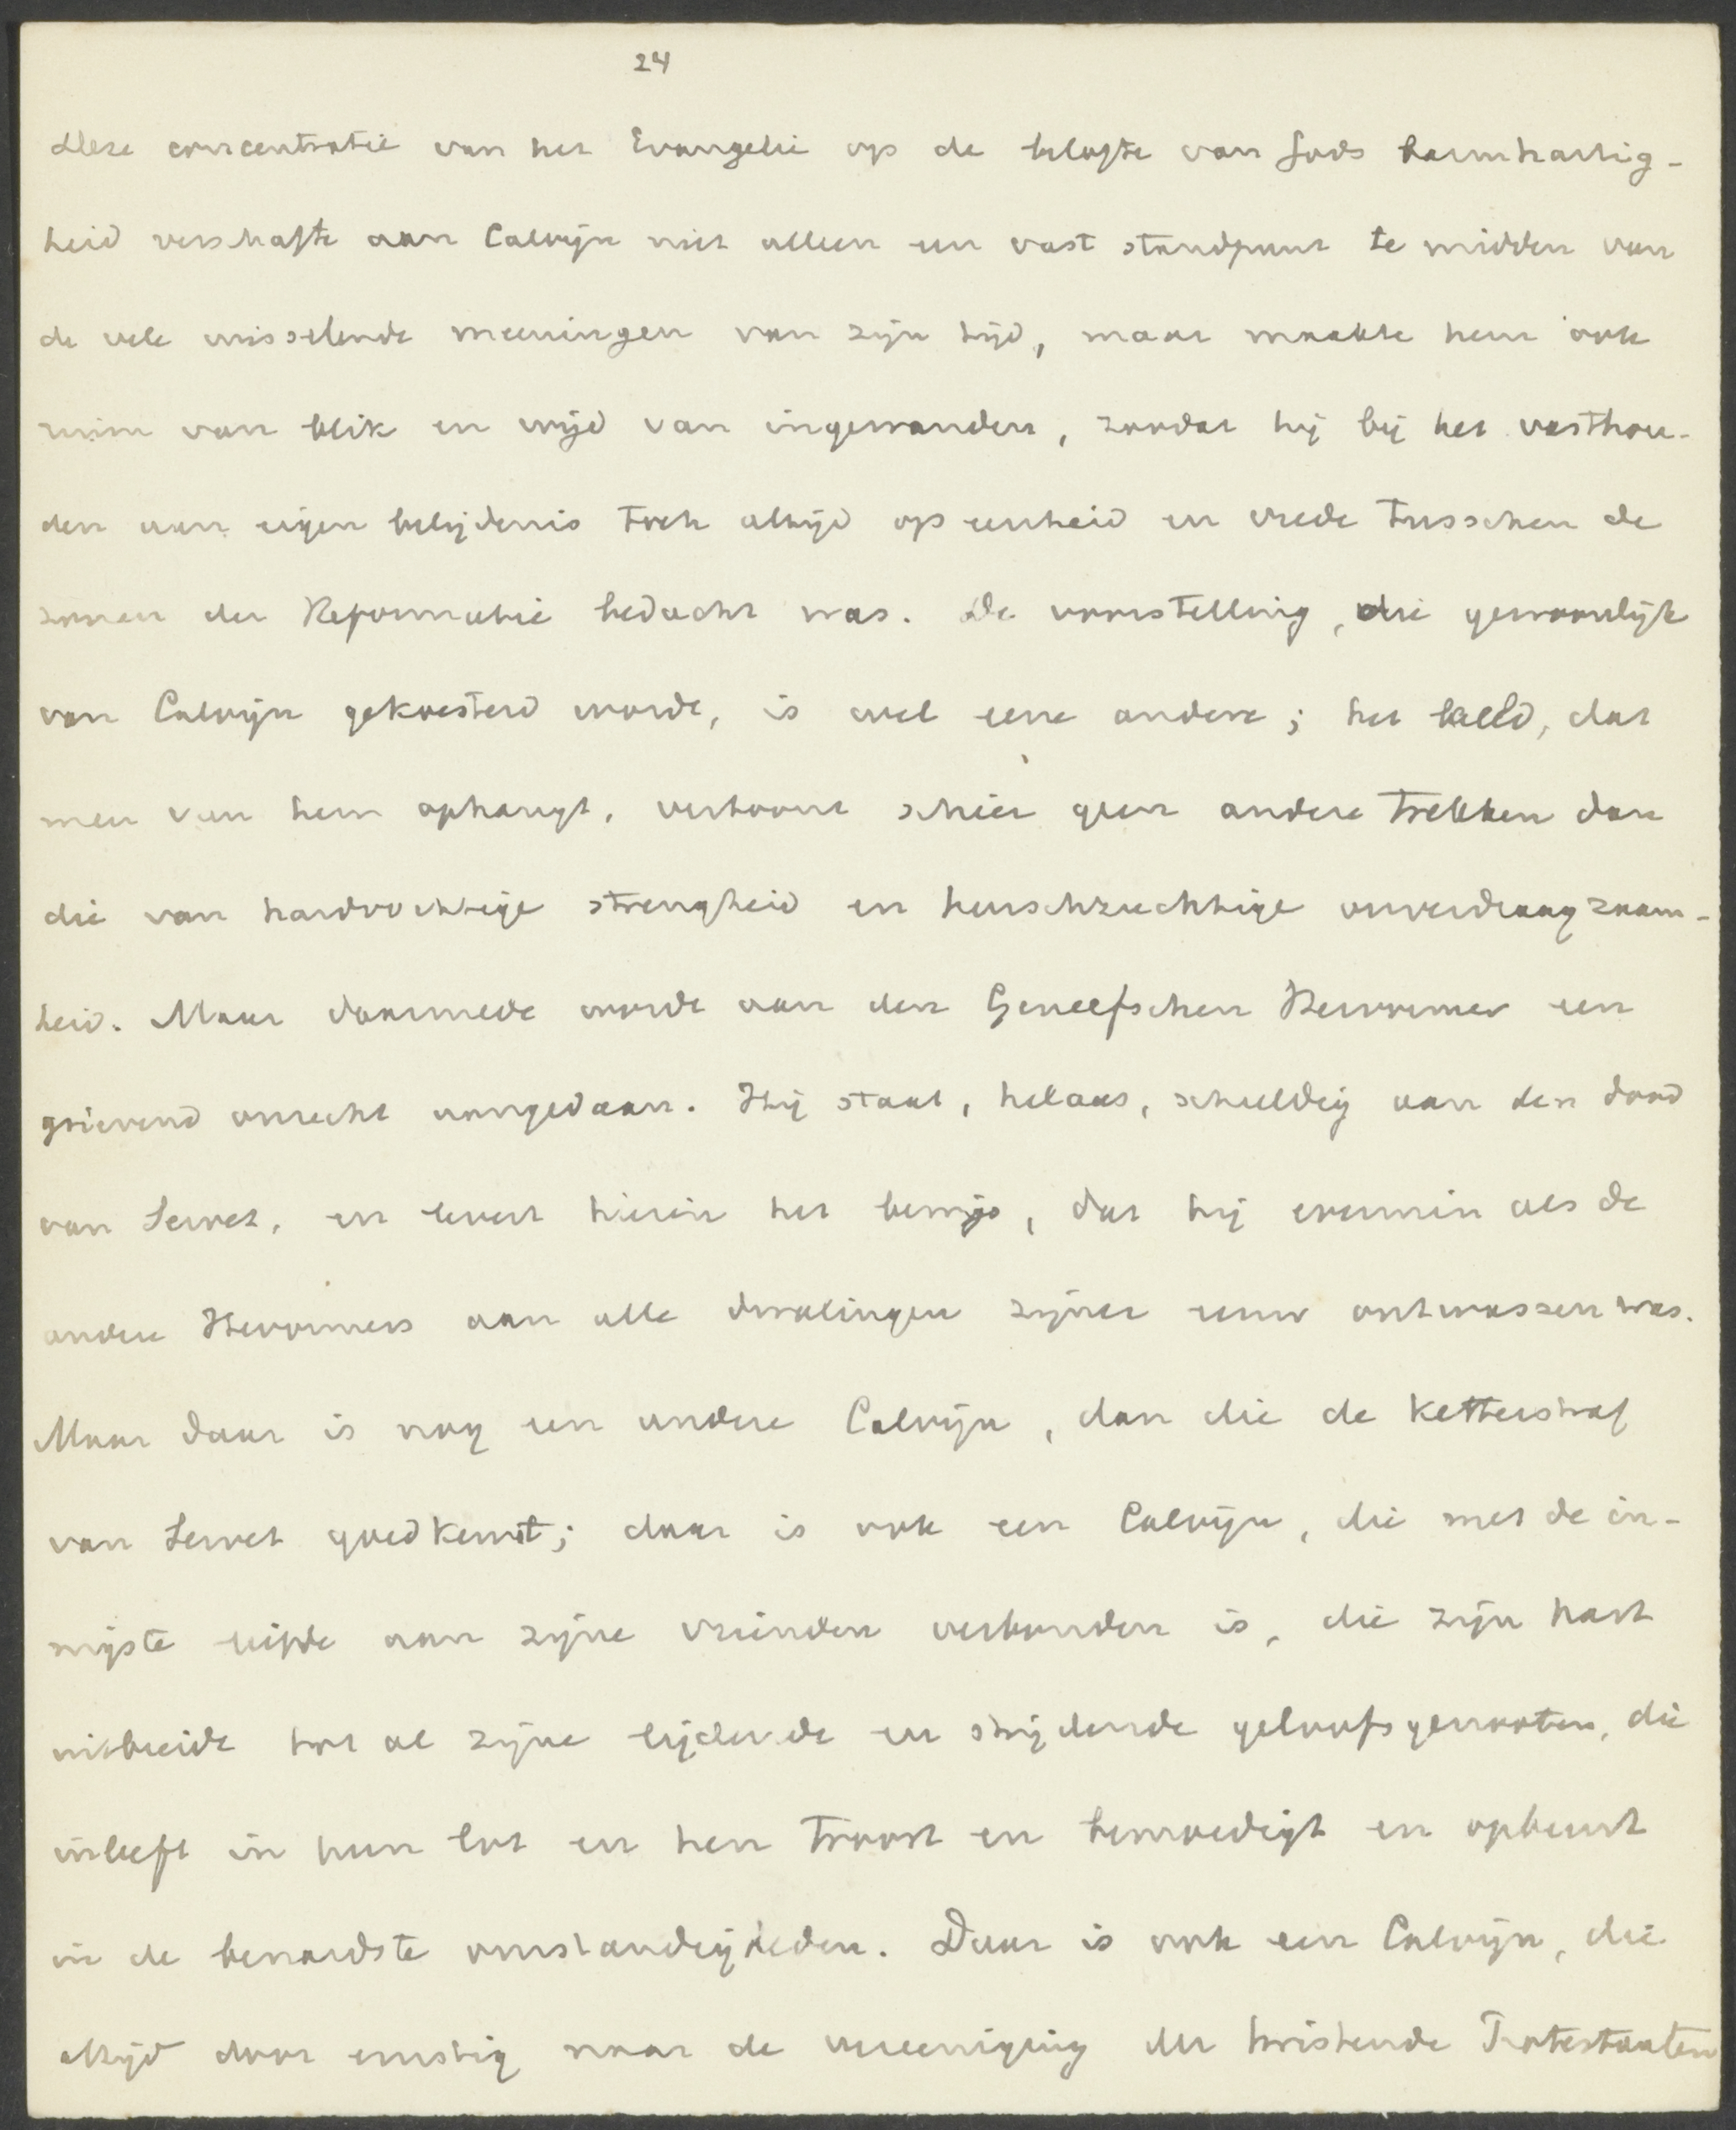 24
Deze concentratie van het Evangelie op de belofte van Gods barmhartig-
heid verschafte aan Calvijn niet alleen een vast standpunt te midden van
de vele wisselende meeningen van zijn tijd, maar maakte hem ook
ruim van blik en wijd van ingewanden, zoodat hij bij het vasthou-
den aan eigen belijdenis toch altijd op eenheid en vrede tusschen de
zonen der Reformatie bedacht was. De voorstelling, die gewoonlijk
van Calvijn gekoesterd wordt, is wel eene andere; het beeld, dat
men van hem ophangt, vertoont schier geen andere trekken dan
die van hardvochtige strengheid en heerschzuchtige onverdraagzaam-
heid. Maar daarmede wordt aan den Geneefschen Hervormer een
grievend onrecht aangedaan. Hij staat, helaas, schuldig aan den dood
van Servet, en levert hierin het bewijs, dat hij evenmin als de
andere Hervormers aan alle dwalingen zijner eeuw ontwassen was.
Maar daar is nog een andere Calvijn, dan die de ketterstraf
van Servet goedkeurt; daar is ook een Calvijn, die met de in-
nigste liefde aan zijne vrienden verbonden is, die zijn hart
uitbreidt tot al zijne lijdende en strijdende geloofsgenooten, die
inleeft in hun lot en hen troost en bemoedigt en opbeurt
in de benardste omstandigheden. Daar is ook een Calvijn, die
altijd door ernstig naar de vereeniging der twistende Protestanten